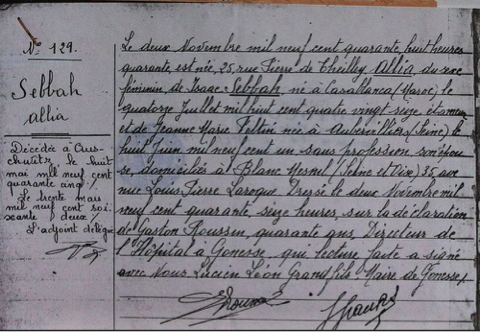 N° 129.
Sebbah
Allia
Décédée à Aus-
chwitz, le huit
mai mil neuf cent
quarante cinq /.
Le trente mars
mil neuf cent soi-
xante deux /.
L'adjoint délégué
Le deux Novembre mil neuf cent quarante, huit heures
quarante, est née, 25, rue Pierre de Theilley Allia, du sexe
féminin, de Isaac Sebbah, né à Casablanca (Maroc) le
quatorze Juillet mil huit cent quatre vingt seize
et de Jeanne Marie née à Aubervilliers (Seine) le
huit Juin mil neuf cent un sans profession son épou-
se, domiciliés à Blanc Mesnil (Seine et Oise) 35, ave-
nue Louis Pierre Laroque Dressé le deux Novembre mil
neuf cent quarante, seize heures, sur la déclaration
de Gaston Roussin, quarante ans, Directeur de
l'Hôpital à Gonesse, qui, lecture faite a signé
avec Nous Lucien Léon Grandfils Maire de Gonesse /.